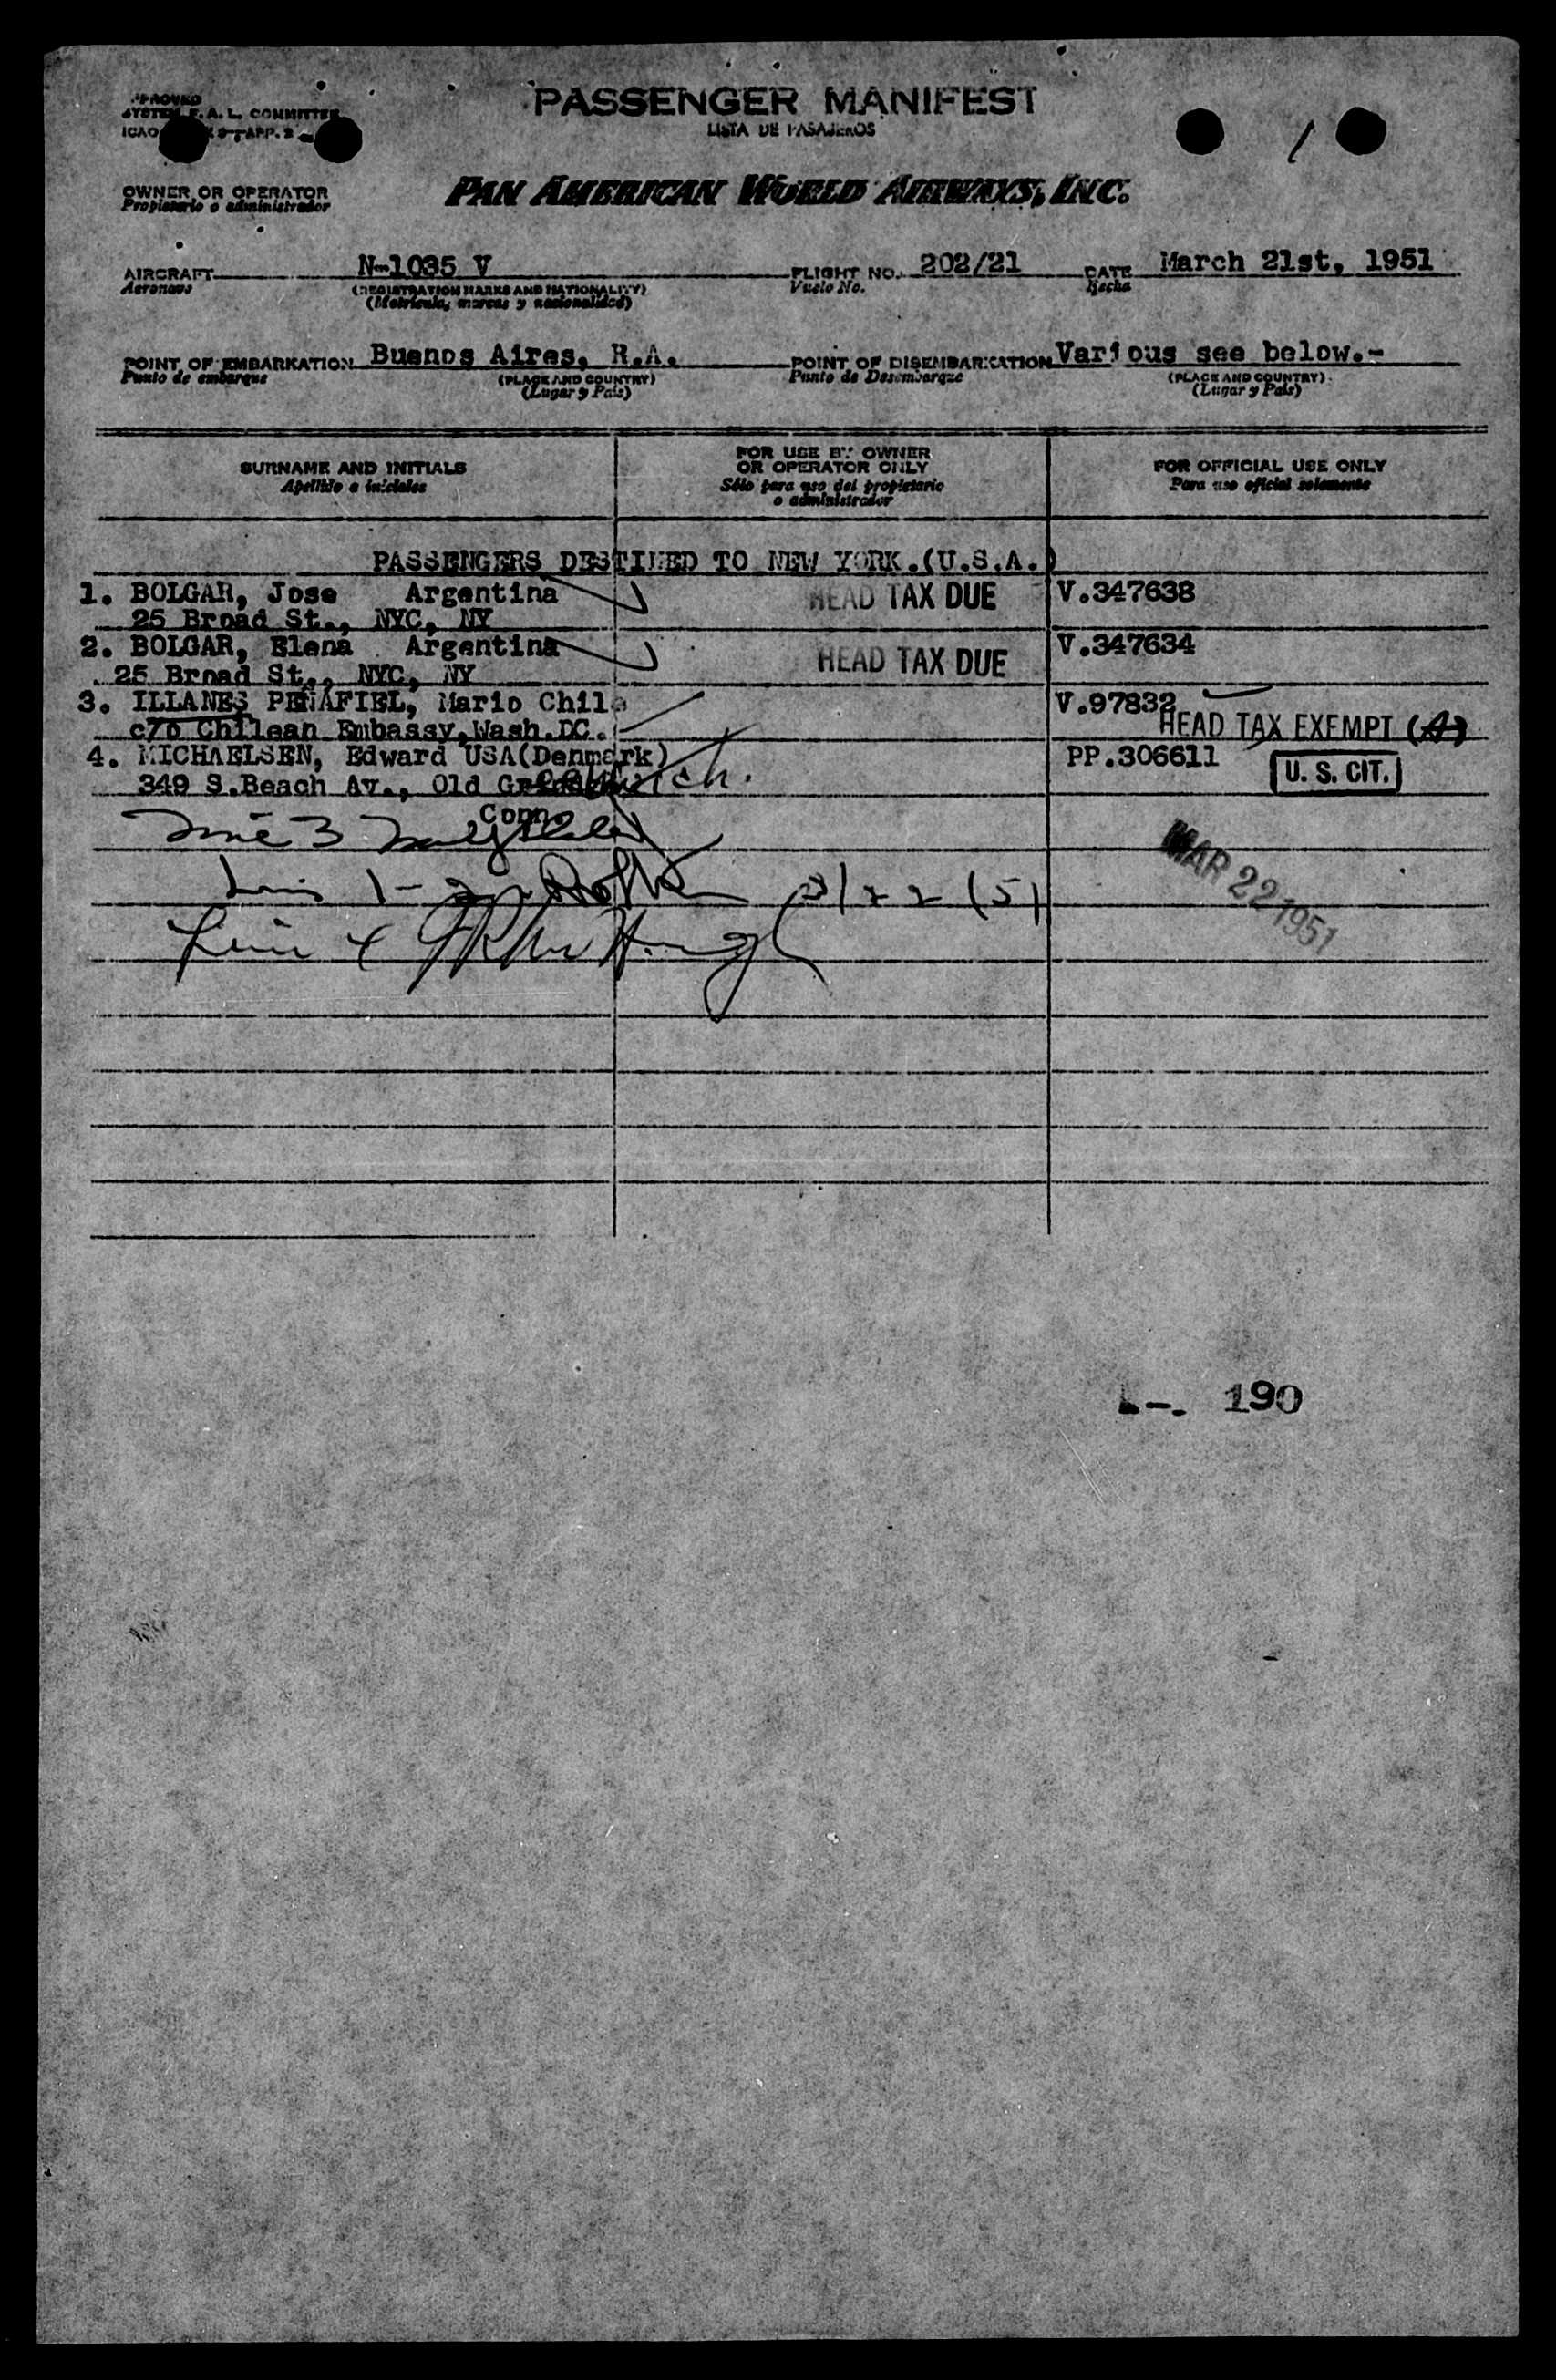 PASSENGER MANIFEST
LISTA DE PASAJEROS
APPROVED
SYSTEM F.A.L. COMMITTEE
ICAO 9-APP. 2
/
OWNER OR OPERATOR
Propietario o administrador
PAN AMERICAN WORLD AIRWAYS, INC.
AIRCRAFT N-1035 V FLIGHT NO. 202/21 DATE March 21st, 1951
Aeronave (REGISTRATION MARKS AND NATIONALITY) Vuelo No. Fecha
(Matrícula, marcas y nacionalidad)
POINT OF EMBARKATION Buenos Aires, R.A. POINT OF DISEMBARKATION Various see below.-
Punto de embarque (PLACE AND COUNTRY) Punto de Desembarque (PLACE AND COUNTRY)
(Lugar y País) (Lugar y País)
SURNAME AND INITIALS
Apellido e iniciales
FOR USE BY OWNER
OR OPERATOR ONLY
Sólo para uso del propietario
o administrador
FOR OFFICIAL USE ONLY
Para uso oficial solamente
PASSENGERS DESTINED TO NEW YORK.(U.S.A.)
1. BOLGAR, Jose Argentina HEAD TAX DUE V.347638
25 Broad St., NYC, NY
2. BOLGAR, Elena Argentina HEAD TAX DUE V.347634
25 Broad St., NYC, NY
3. ILLANES PEÑAFIEL, Mario Chile V.97832
c/o Chilean Embassy,Wash.DC. HEAD TAX EXEMPT (A)
4. MICHAELSEN, Edward USA(Denmark) PP.306611 U. S. CIT.
349 S.Beach Av., Old Greenwich.
Conn.
MAR 22 1951
3/22/51
190